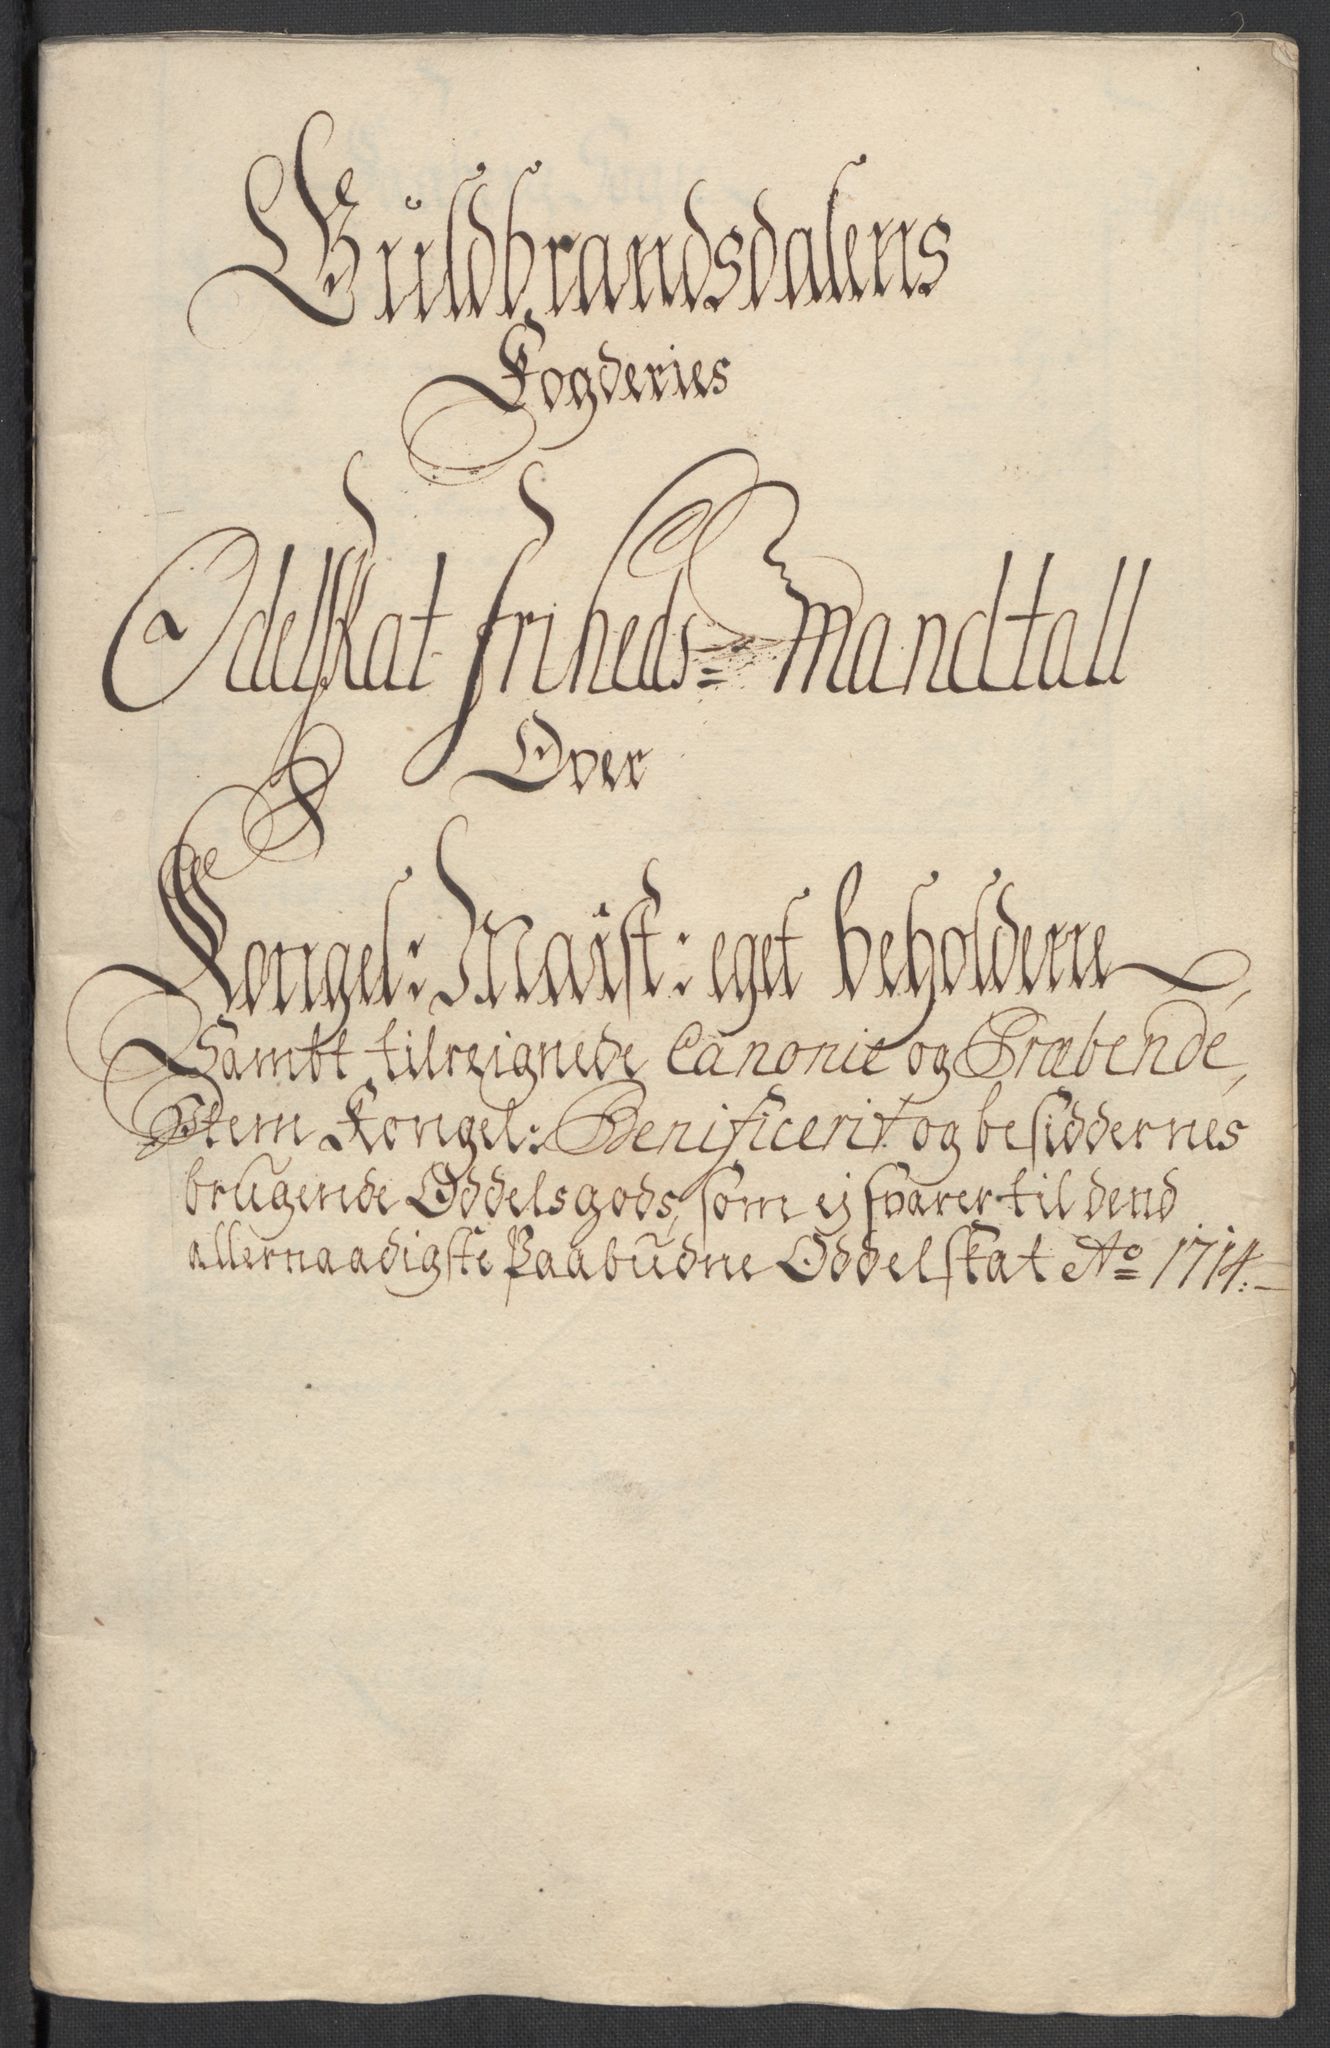 Guldbrandsdalens
Fogderies
Odelskat friheds= Mandtall
Over
Kongel: Maÿst: eget beholdene
Sambt tilreignede Canonie og Præbende,
Item Kongel: Benificerit og besiddernes
brugende Oddelsgods, som ej svarer til dend
allernaadigste Paabudne Oddelskat Ao 1714.